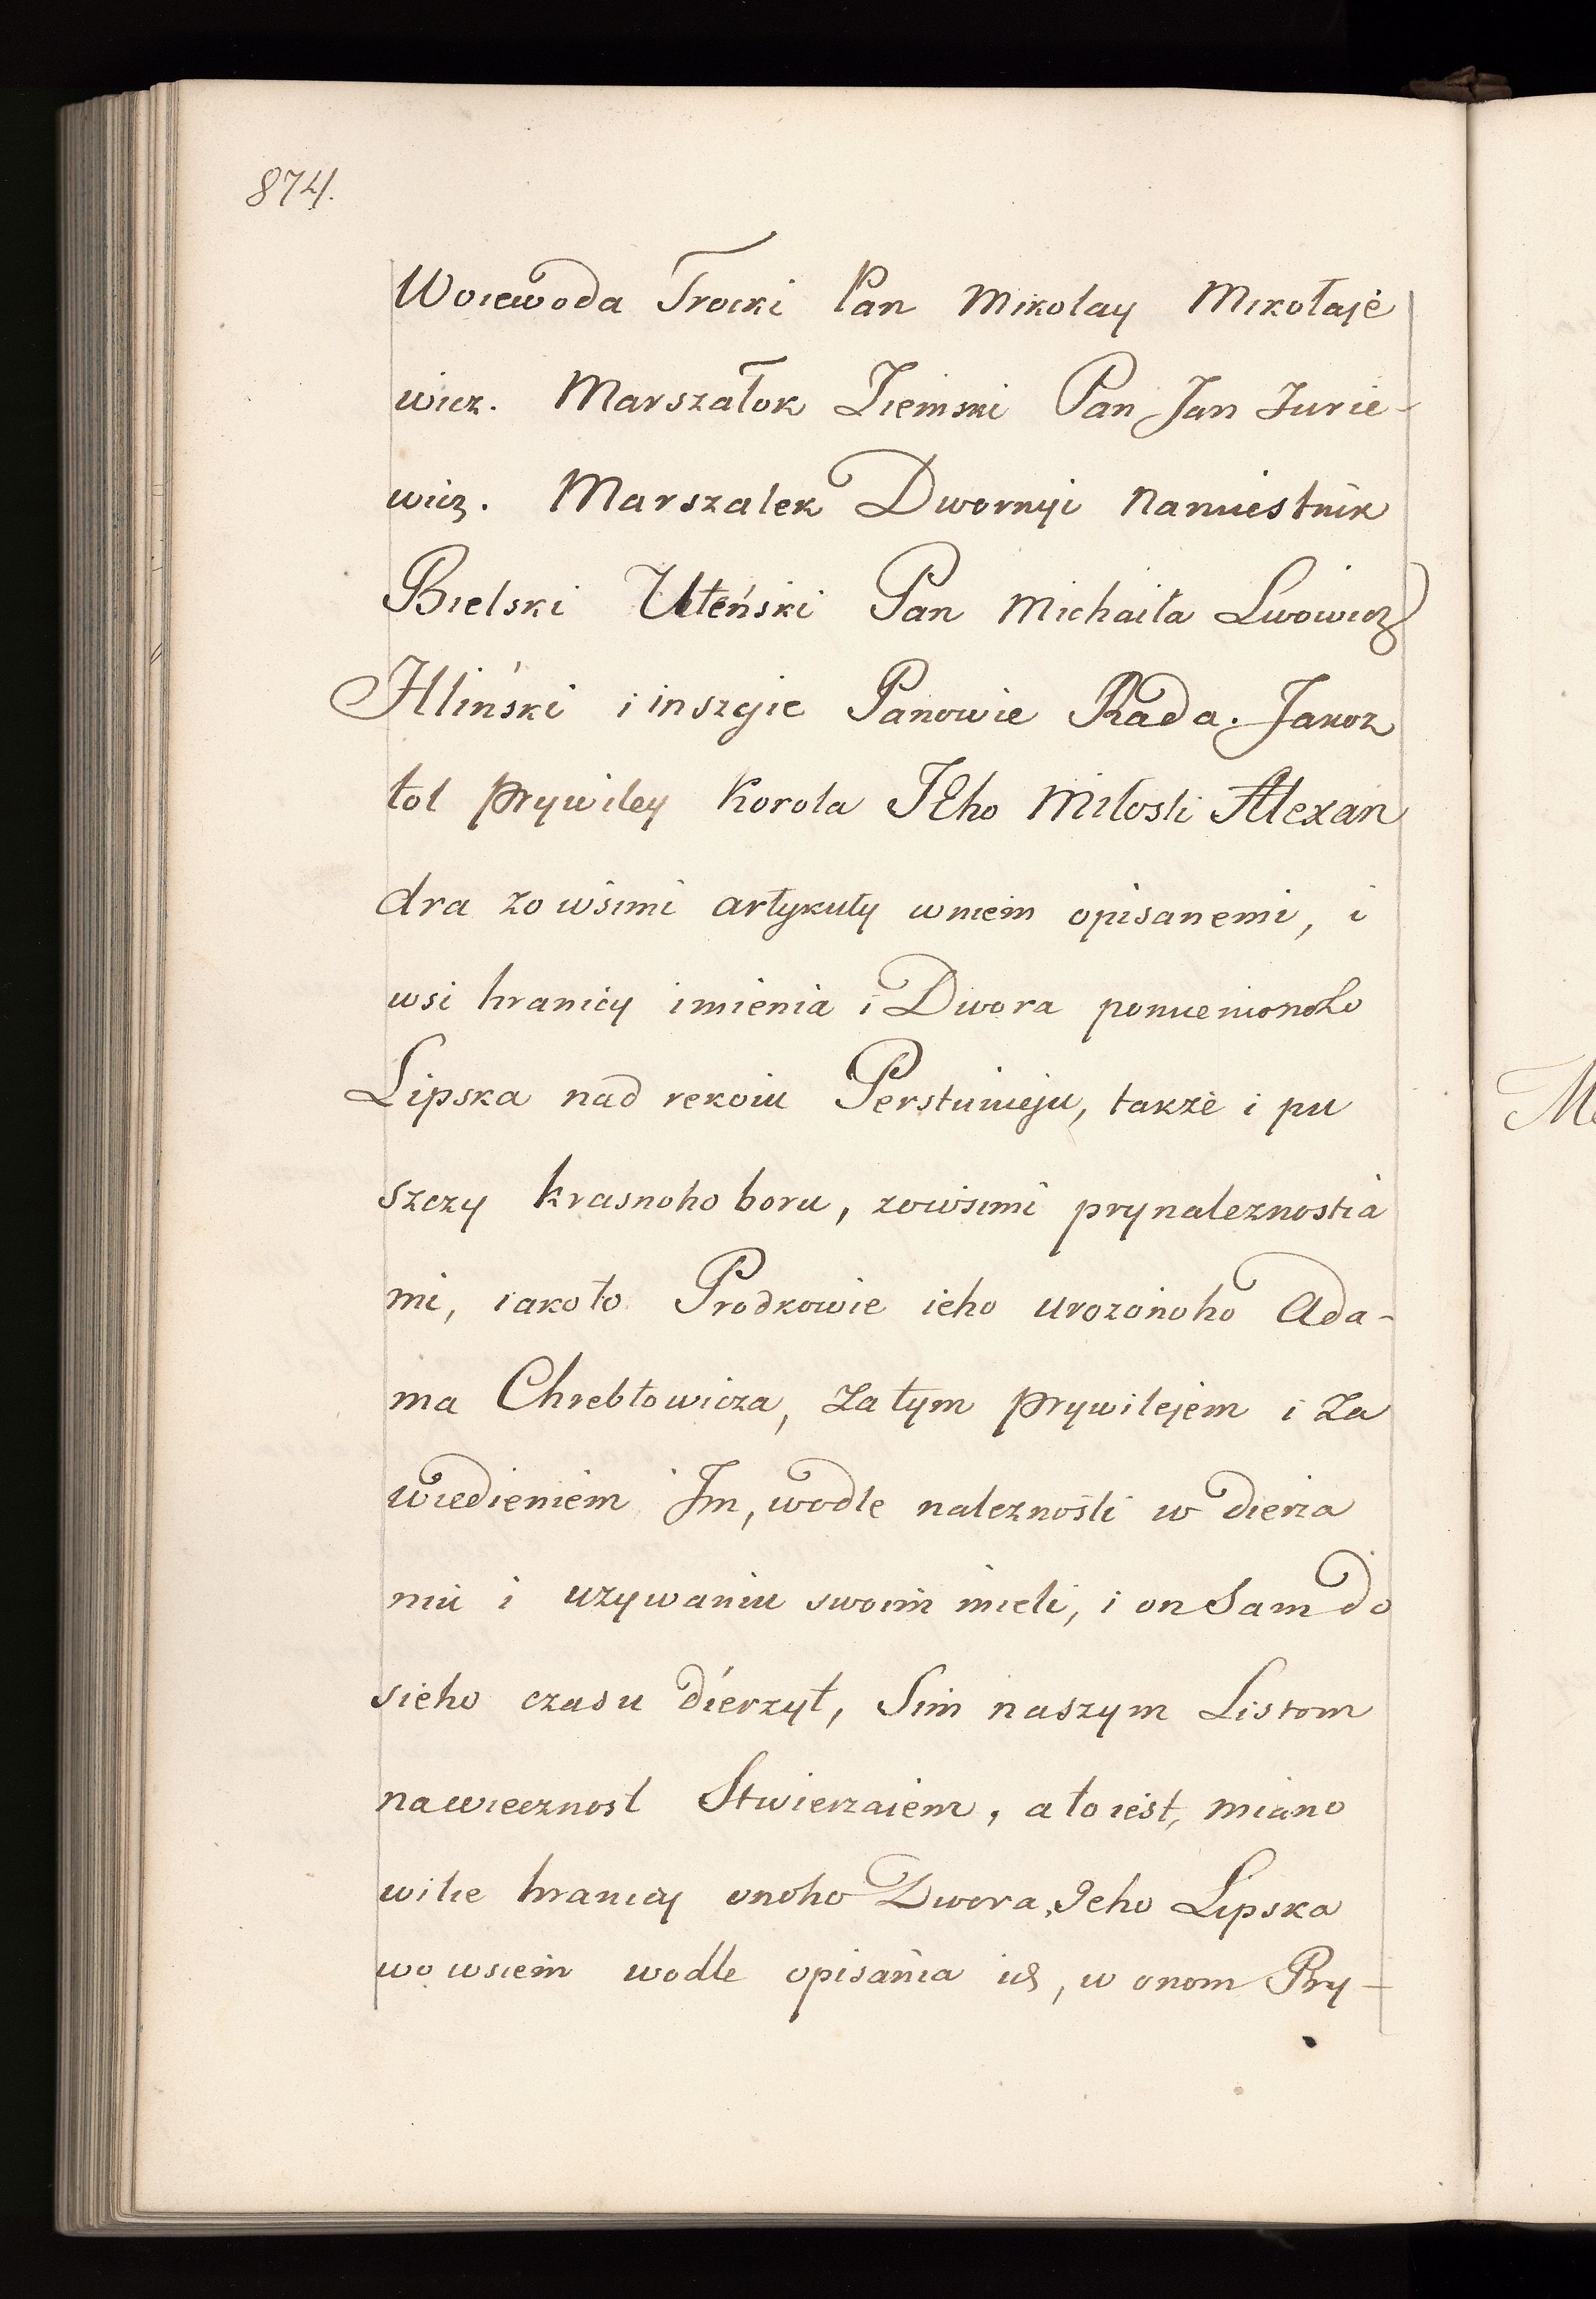 874.
Woiewoda Trocki Pan Mikolay Mikołaje
wicz. Marszałok Ziemski Pan Jan Jurie-
wicz. Marszalek Dwornyi Namiestnik
Bielski Uteński Pan Michaiła Lwowicz
Hliński i inszyie Panowie Rada. Jakoz
tot prywiley Korola JEho Miłosti Alexan
dra zo wsimi artykuły wniem opisanemi, i
wsi hranicy imienia i Dwora pomienionoho
Lipska nad rekoiu Perstunieju, takze i pu
szczy krasnoho boru, zowsimi prynaleznostia
mi, iako to Prodkowie ieho urozonoho Ada-
ma Chrebtowicza, za tym prywilejem i za
wiedieniem Im, wodle naleznosti w dierza
niu i uzywaniu swoim mieli, i on Sam do
sieho czasu dierzył, Sim naszym Listom
nawiecznost Stwierzaiem, a to iest, miano
wite hranicy onoho Dwora Jeho Lipska
wo wsiem wodle opisania ich, w onom Pry-